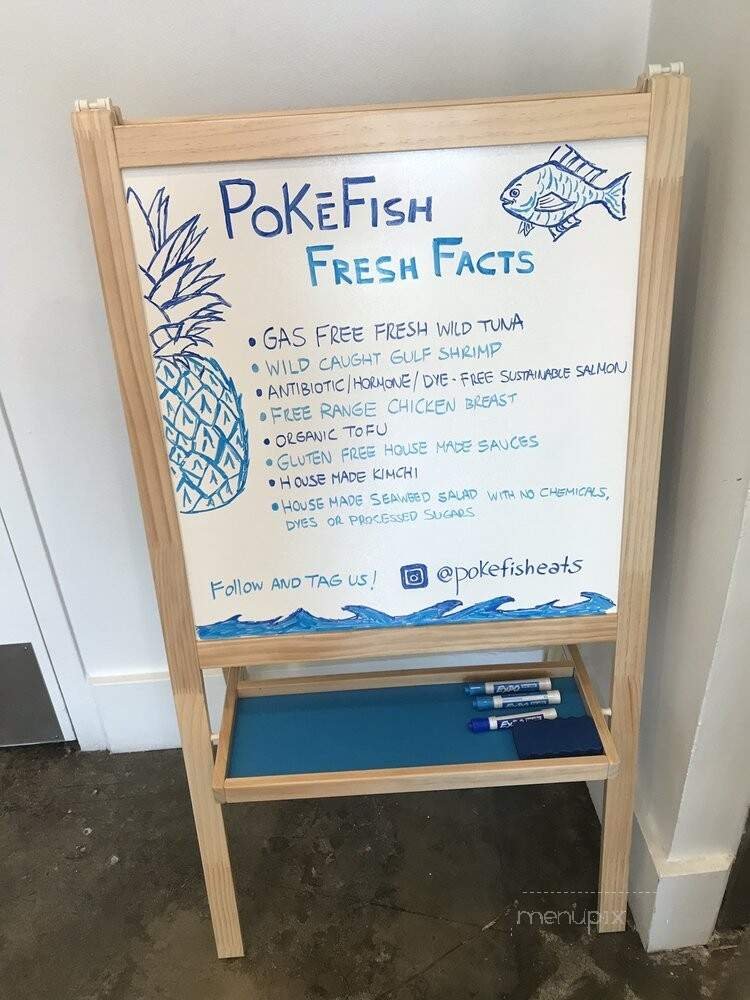 POKĒFISH
FRESH FACTS
• GAS FREE FRESH WILD TUNA
• WILD CAUGHT GULF SHRIMP
• ANTIBIOTIC/HORMONE/DYE-FREE SUSTAINABLE SALMON
• FREE RANGE CHICKEN BREAST
• ORGANIC TOFU
• GLUTEN FREE HOUSE MADE SAUCES
• HOUSE MADE KIMCHI
• HOUSE MADE SEAWEED SALAD WITH NO CHEMICALS,
DYES OR PROCESSED SUGARS
FOLLOW AND TAG US! @pokefisheats
EXPO
EXPO
EXPO
menupix